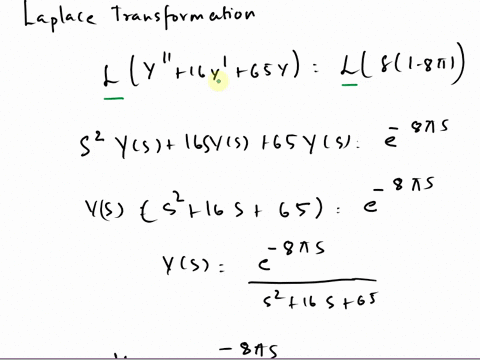 Laplace Transformation
L (y'' + 16y' + 65y) = L ( δ(1-8π1)
s² Y(s) + 16SY(s) + 65 Y(s) = e^-8πs
Y(s) {s² + 16 s + 65) = e^-8πs
Y(s) = e^-8πs / s² + 16 s + 65
-8πs